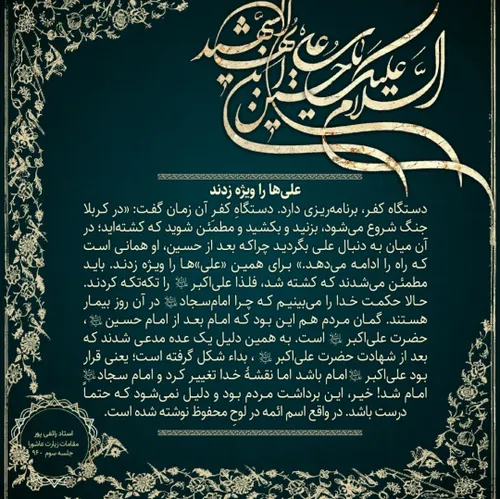 السلام علیک یا حسین بن علی ایها الشهید
علی‌ها را ویژه زدند
دستگاه کفر، برنامه‌ریزی دارد. دستگاهِ کفر آن زمان گفت: «در کربلا
جنگ شروع می‌شود، بزنید و بکشید و مطمئن شوید که کشته‌اید؛ در
آن میان به دنبال علی بگردید چراکه بعد از حسین، او همانی است
که راه را ادامه می‌دهد.» برای همین «علی»ها را ویژه زدند. باید
مطمئن می‌شدند که کشته شد، فلذا علی‌اکبر را تکه‌تکه کردند.
حالا حکمت خدا را می‌بینیم که چرا امام‌سجاد در آن روز بیمار
هستند. گمان مردم هم این بود که امام بعد از امام حسین ،
حضرت علی‌اکبر است. به همین دلیل یک عده مدعی شدند که
بعد از شهادت حضرت علی‌اکبر ، بداء شکل گرفته است؛ یعنی قرار
بود علی‌اکبر امام باشد اما نقشهٔ خدا تغییر کرد و امام سجاد
امام شد! خیر، این برداشت مردم بود و دلیل نمی‌شود که حتماً
درست باشد. در واقع اسم ائمه در لوحِ محفوظ نوشته شده است.
استاد رائفی پور
مقامات زیارت عاشورا
جلسه سوم ۹۶۰